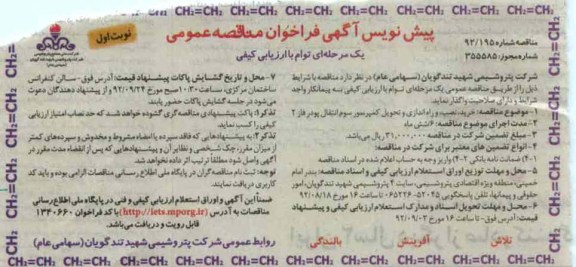 CH₂=CH₂ CH₂=CH₂ CH₂=CH₂ CH₂=CH₂ CH₂=CH₂ CH₂=CH₂ CH₂=CH₂
مناقصه شماره ۹۲/۱۹۵
شماره مجوز: ۳۵۵۵۸۵
پیش نویس آگهی فراخوان مناقصه عمومی
یک مرحله‌ای توام با ارزیابی کیفی
نوبت اول
شرکت پتروشیمی شهید تندگویان (سهامی عام) در نظر دارد مناقصه با شرایط
ذیل را از طریق مناقصه عمومی یک مرحله‌ای توام با ارزیابی کیفی به پیمانکار واجد
شرایط و دارای صلاحیت واگذار نماید.
۱- موضوع مناقصه: خرید، نصب و راه اندازی و تحویل کمپرسور سوم انتقال پودر فاز ۲
۲- مدت اجرای موضوع مناقصه: ۶ شش ماه
۳- مبلغ تضمین شرکت در مناقصه: ۳۱,۰۰۰,۰۰۰ ریال می‌باشد.
۴- انواع تضمین های معتبر برای شرکت در مناقصه:
۴-۱) ضمانت نامه بانکی ۴-۲) واریز وجه به حساب اعلام شده در اسناد مناقصه
۵- محل و مهلت توزیع اوراق استعلام ارزیابی کیفی و اسناد مناقصه: بندر امام
خمینی، منطقه ویژه اقتصادی پتروشیمی، سایت ۴ پتروشیمی شهید تندگویان، امور
حقوقی و پیمانها، تلفن پاسخگویی ۵۲-۰۶۵۲۲۶۵۰۲۵ تا ساعت ۱۶ مورخ ۹۲/۰۸/۱۸
۶- محل و مهلت تحویل اسناد و مدارک استعلام ارزیابی کیفی و پیشنهاد
قیمت: آدرس فوق - تا ساعت ۱۶ مورخ ۹۲/۰۹/۰۲
تلاش آفرینش بالندگی
۷- محل و تاریخ گشایش پاکات پیشنهاد قیمت: آدرس فوق - سالن کنفرانس
ساختمان مرکزی، ساعت ۱۰:۳۰ صبح مورخ ۹۲/۰۹/۲۴ و از پیشنهاد دهندگان دعوت
می‌شود در جلسه گشایش پاکات حضور یابند.
تذکر۱: پاکت پیشنهادی مناقصه گری گشوده خواهد شد که حد نصاب امتیاز ارزیابی
کیفی را کسب نماید.
تذکر۲: به پیشنهادهایی که فاقد سپرده یا امضاء مشروط و مخدوش و سپرده‌های کمتر
از میزان مقرر، چک شخصی و نظایر آن و پیشنهادهایی که پس از انقضاء مدت مقرر در
آگهی واصل شود مطلقاً ترتیب اثر داده نخواهد شد.
توجه: ثبت نام مناقصه گران در پایگاه ملی اطلاع رسانی مناقصات الزامی بوده و باید کد
کاربری دریافت نمایند.
ضمناً آگهی و اوراق استعلام ارزیابی کیفی و فنی در پایگاه ملی اطلاع رسانی
مناقصات به آدرس (http://iets.mporg.ir) با کد فراخوان ۱۳۴۰۶۶۰
قابل رویت و دریافت می‌باشد.
روابط عمومی شرکت پتروشیمی شهید تندگویان (سهامی عام)
CH₂=CH₂ CH₂=CH₂ CH₂=CH₂ CH₂=CH₂ CH₂=CH₂ CH₂=CH₂ CH₂=CH₂